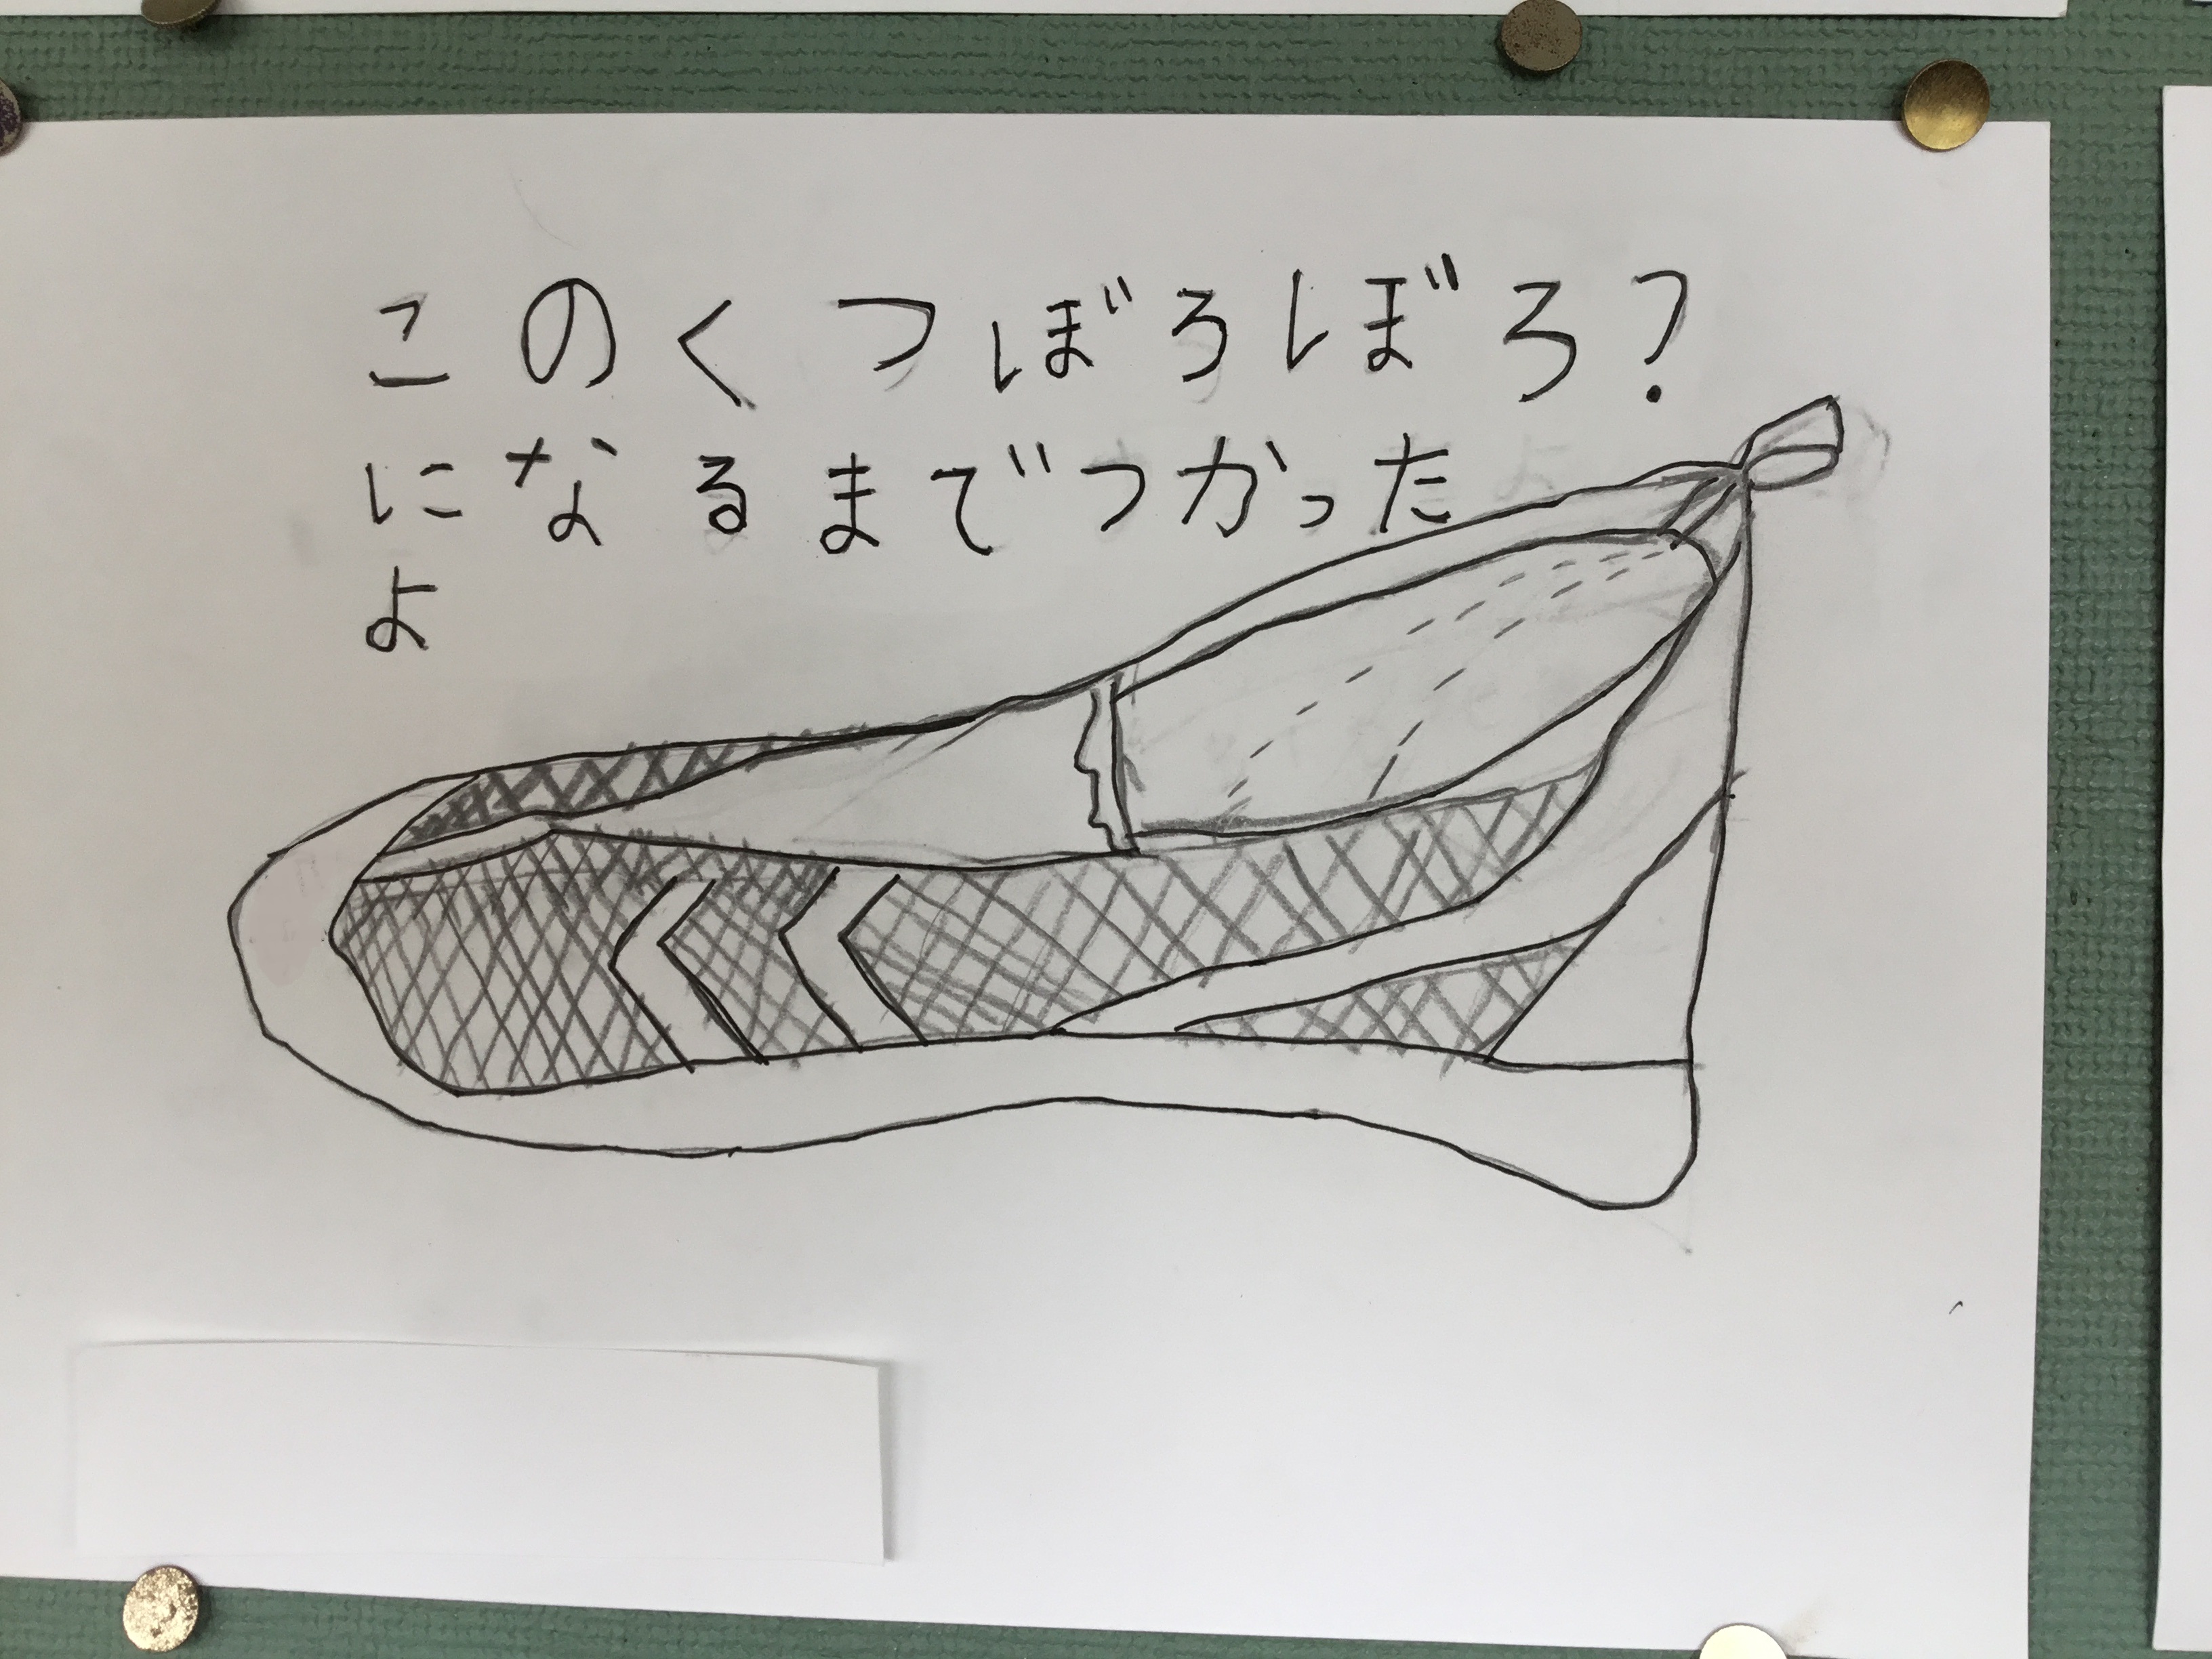 このくつぼろぼろ?
になるまでつかった
よ